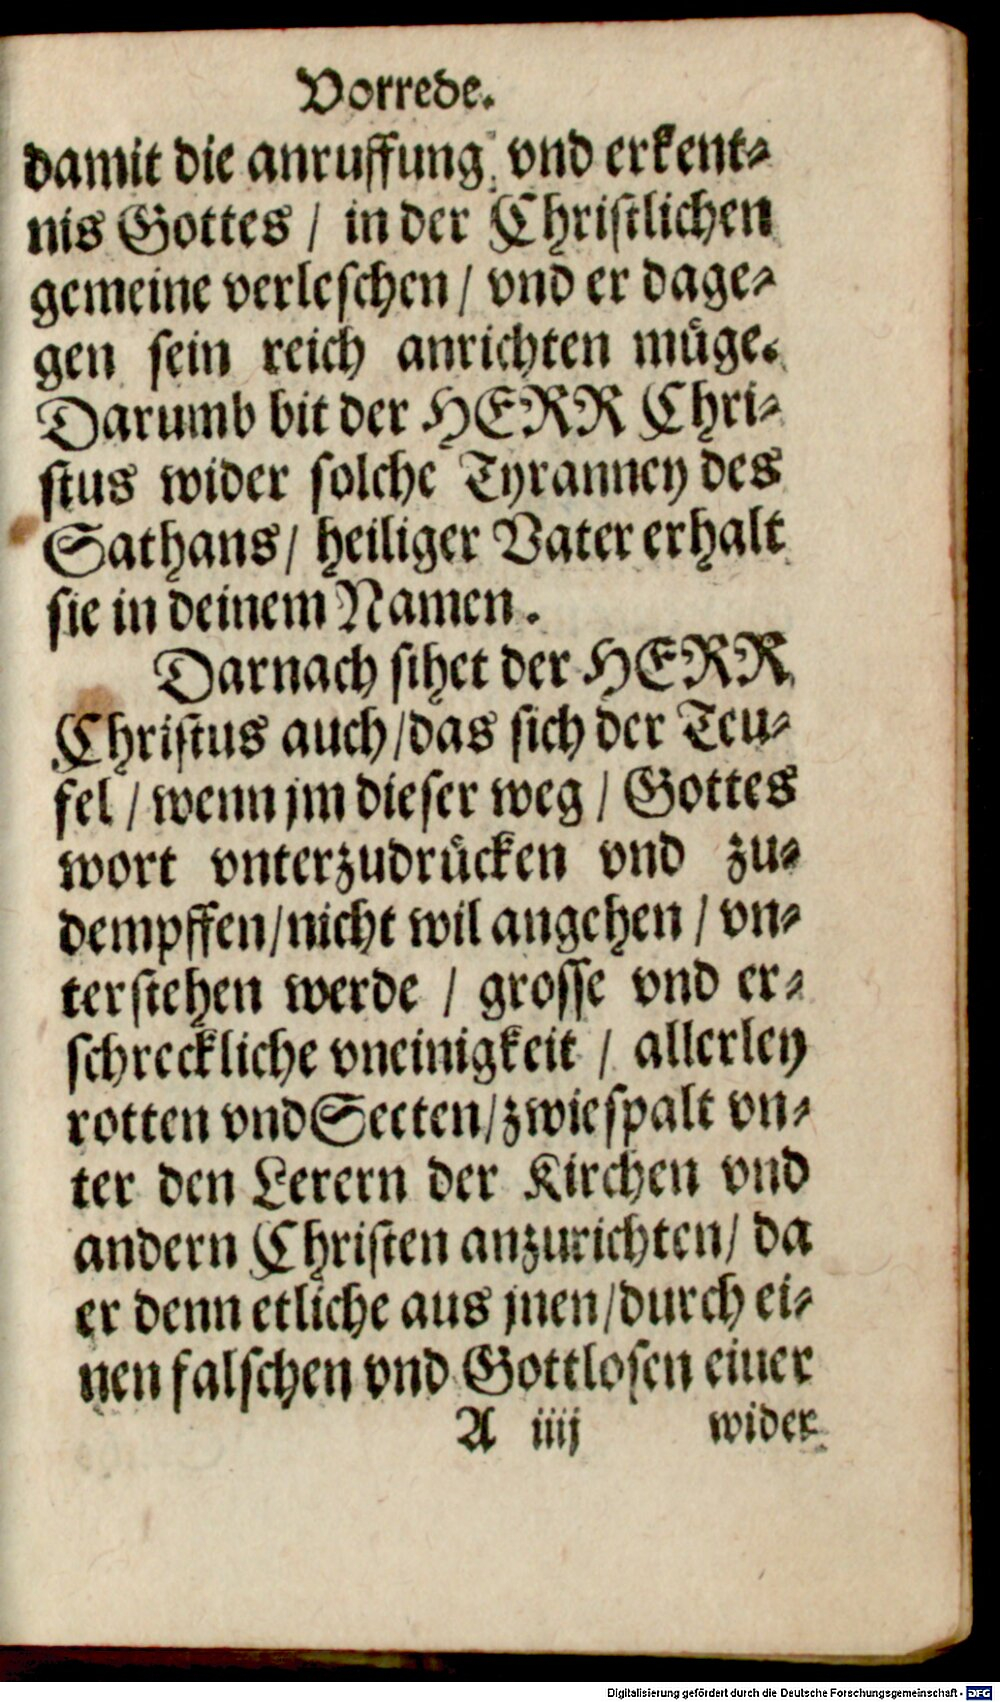 Vorrede.
damit die anruffung vnd erkent-
nis Gottes / in der Christlichen
gemeine verleschen / vnd er dage-
gen sein reich anrichten müge.
Darumb bit der HERR Chri-
stus wider solche Tyranney des
Sathans / heiliger Vater erhalt
sie in deinem Namen.
Darnach sihet der HERR
Christus auch / das sich der Teu-
fel / wenn jm dieser weg / Gottes
wort vnterzudrücken vnd zu-
dempffen / nicht wil angehen / vn-
terstehen werde / grosse vnd er-
schreckliche vneinigkeit / allerley
rotten vnd Secten / zwiespalt vn-
ter den Lerern der Kirchen vnd
andern Christen anzurichten / da
er denn etliche aus jnen / durch ei-
nen falschen vnd Gottlosen eiuer
A iiij wider
Digitalisierung gefördert durch die Deutsche Forschungsgemeinschaft - DFG